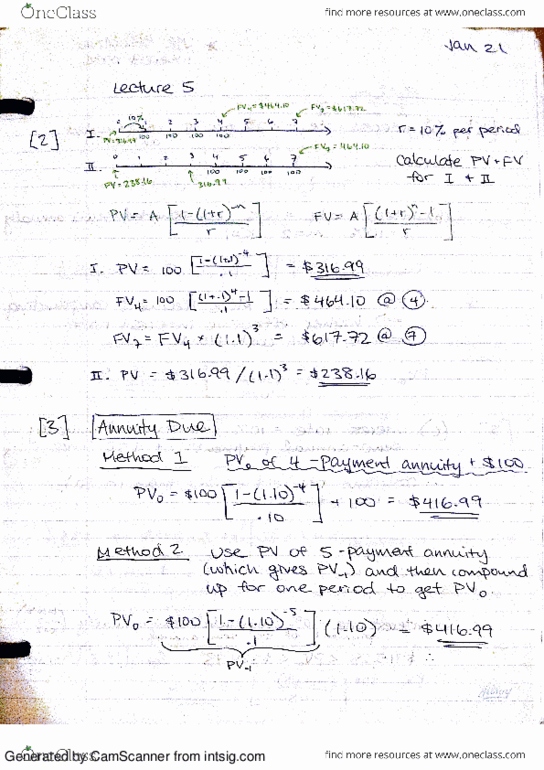 OneClass
find more resources at www.oneclass.com
Jan 21
Lecture 5
10%
FV₄ = $464.10
FV₇ = $617.72
[2]
I. 0 1 2 3 4 5 6 7
r = 10% per period
PV = 316.99 100 100 100 100
FV₇ = 464.10
II. 0 1 2 3 4 5 6 7
Calculate PV + FV
100 100 100 100
for I + II
PV = 238.16 316.99
PV = A [1-(1+r)⁻ⁿ / r] FV = A [(1+r)ⁿ-1 / r]
I. PV = 100 [1-(1+.1)⁻⁴ / .1] = $316.99
FV₄ = 100 [(1+.1)⁴-1 / .1] = $464.10 @ 4
FV₇ = FV₄ × (1.1)³ = $617.72 @ 7
II. PV = $316.99 / (1.1)³ = $238.16
[3] Annuity Due
Method 1 PV₀ of 4-Payment annuity + $100
PV₀ = $100 [1-(1.10)⁻⁴ / .10] + 100 = $416.99
Method 2 Use PV of 5-payment annuity
(which gives PV₋₁) and then compound
up for one period to get PV₀.
PV₀ = $100 [1-(1.10)⁻⁵ / .1] (1.10) = $416.99
PV₋₁
Generated by CamScanner from intsig.com
OneClass
find more resources at www.oneclass.com